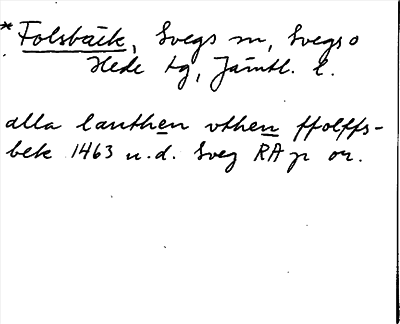 *Folsbäck, Svegs sn, Svegs o
Hede tg, Jämtl. l.
alla lanthen vthen ffolffs-
bek 1463 u.d. Sveg RA p or.